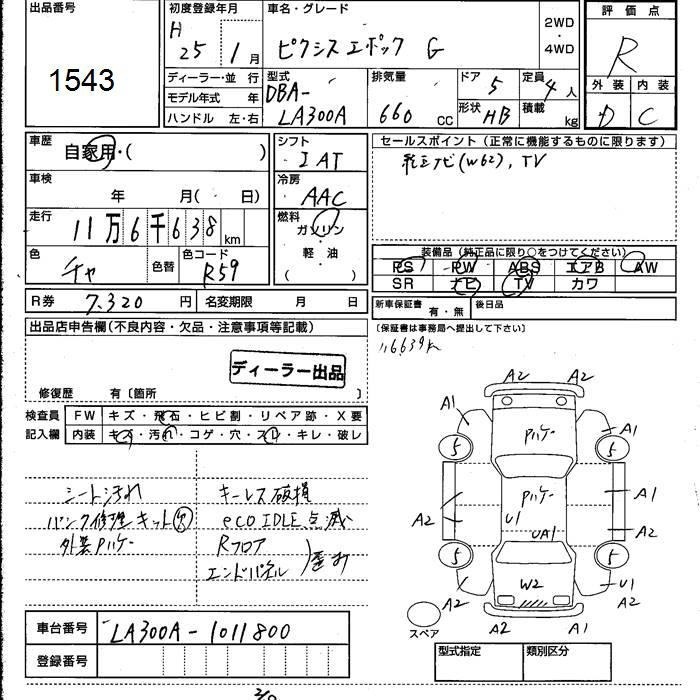 出品番号
1543
初度登録年月
H
25年1月
車名・グレード
ピクシスエポック G
2WD
・
4WD
評価点
R
外装 内装
D C
ディーラー・並行
モデル年式 年
ハンドル 左・右
型式
DBA-
LA300A
排気量
660 cc
ドア 5
形状 HB
定員 4人
積載 kg
車歴
自家用・( )
車検
年 月( 日)
走行
11万6千638km
色
チャ
色替
色コード
R59
シフト
IAT
冷房
AAC
燃料
ガソリン
・
軽油
( )
セールスポイント(正常に機能するものに限ります)
純正ナビ(W62), TV
装備品(純正品に限り○をつけてください)
PS PW ABS エアB AW
SR ナビ TV カワ
R券 7,320円
名変期限 月 日
新車保証書 有・無
後日品
(保証書は事務局へ提出して下さい)
116639K
出品店申告欄(不良内容・欠品・注意事項等記載)
ディーラー出品
修復歴 有〔箇所 〕
検査員
記入欄
FW キズ・飛石・ヒビ割・リペア跡・X要
内装 キズ・汚れ・コゲ・穴・スレ・キレ・破レ
シート汚れ
パンク修理キット欠
外装Pハゲー
キーレス破損
eco IDLE点滅
Rフロア
エンドパネル
歪み
A2 A2
A1 A1
Pハゲー
5 5
Pハゲー
A2 A1
U1 A2
UA1
5 5
W2
A2 U1
A2
A2 A1
スペア
車台番号 LA300A-1011800
登録番号
型式指定 類別区分